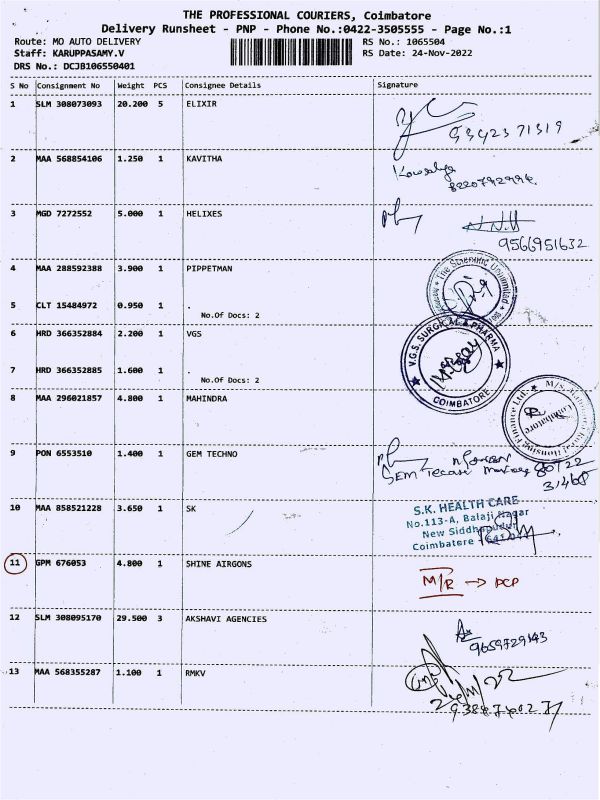 THE PROFESSIONAL COURIERS, Coimbatore
Delivery Runsheet - PNP - Phone No.:0422-3505555 - Page No.:1
Route: MO AUTO DELIVERY
RS No.: 1065504
Staff: KARUPPASAMY.V
RS Date: 24-Nov-2022
DRS No.: DCJB106550401
S No Consignment No Weight PCS Consignee Details Signature
1 SLM 308073093 20.200 5 ELIXIR
9342371319
2 MAA 568854106 1.250 1 KAVITHA
Kowsalya
3 MGD 7272552 5.000 1 HELIXES
9566951632
4 MAA 288592388 3.900 1 PIPPETMAN
The Scientific Unlimited
5 CLT 15484972 0.950 1 .
No.Of Docs: 2
6 HRD 366352884 2.200 1 VGS
V.G.S. SURGICAL & PHARMA
COIMBATORE
7 HRD 366352885 1.600 1 .
No.Of Docs: 2
8 MAA 296021857 4.800 1 MAHINDRA
Housing Finance Ltd.
Coimbatore
9 PON 6553510 1.400 1 GEM TECHNO
10 MAA 858521228 3.650 1 SK
S.K. HEALTH CARE
No.113-A, Balaji Nagar
New Siddhapudur
Coimbatore
11 GPM 676053 4.800 1 SHINE AIRGONS
M/R → DCP
12 SLM 308095170 29.500 3 AKSHAVI AGENCIES
9659729143
13 MAA 568355287 1.100 1 RMKV